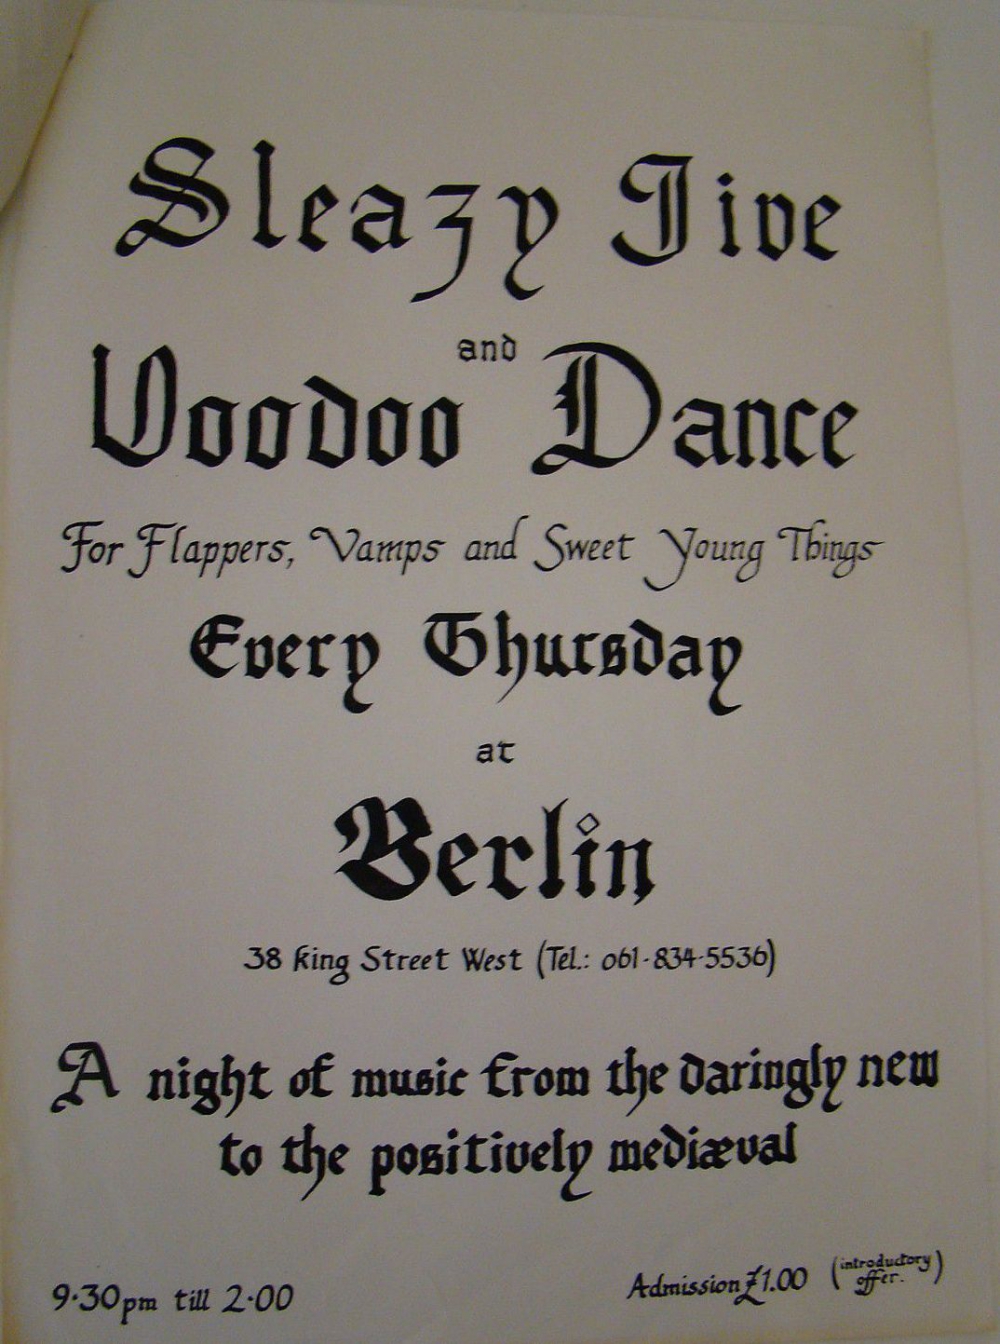 Sleazy Jive
and
Voodoo Dance
For Flappers, Vamps and Sweet Young Things
Every Thursday
at
Berlin
38 King Street West (Tel.: 061-834-5536)
A night of music from the daringly new
to the positively mediæval
9·30pm till 2·00
Admission £1.00 (introductory offer.)